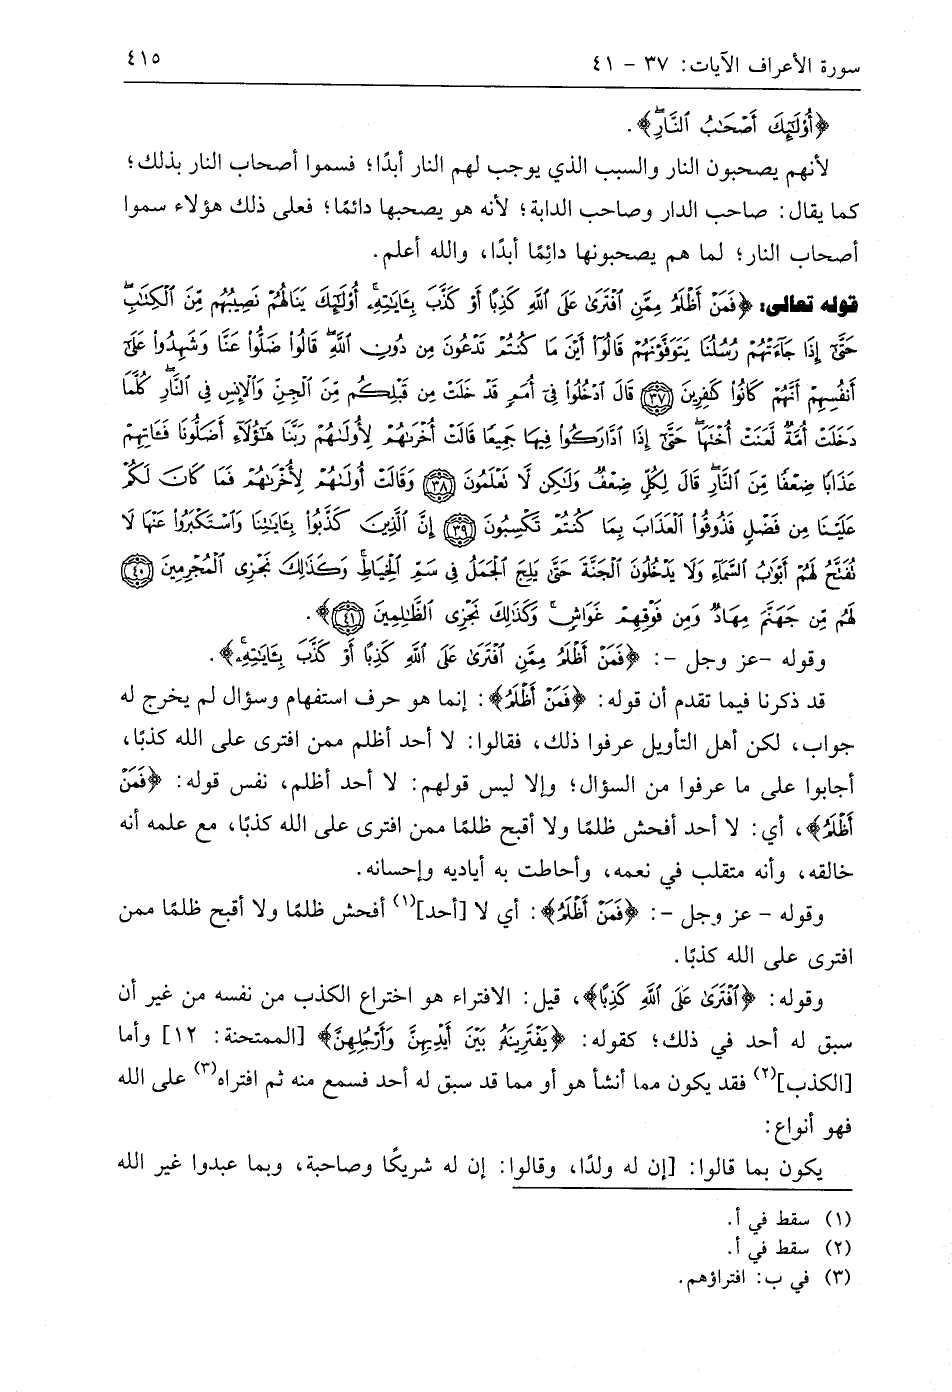 سورة الأعراف الآيات: ٣٧ - ٤١
٤١٥
﴿أُوْلَٰٓئِكَ أَصْحَٰبُ ٱلنَّارِۖ﴾.
لأنهم يصحبون النار والسبب الذي يوجب لهم النار أبدًا؛ فسموا أصحاب النار بذلك؛
كما يقال: صاحب الدار وصاحب الدابة؛ لأنه هو يصحبها دائمًا؛ فعلى ذلك هؤلاء سموا
أصحاب النار؛ لما هم يصحبونها دائِمًا أبدًا، والله أعلم.
قوله تعالى: ﴿فَمَنْ أَظْلَمُ مِمَّنِ ٱفْتَرَىٰ عَلَى ٱللَّهِ كَذِبًا أَوْ كَذَّبَ بِـَٔايَٰتِهِۦٓۚ أُوْلَٰٓئِكَ يَنَالُهُمْ نَصِيبُهُم مِّنَ ٱلْكِتَٰبِۖ
حَتَّىٰٓ إِذَا جَآءَتْهُمْ رُسُلُنَا يَتَوَفَّوْنَهُمْ قَالُوٓا۟ أَيْنَ مَا كُنتُمْ تَدْعُونَ مِن دُونِ ٱللَّهِۖ قَالُوا۟ ضَلُّوا۟ عَنَّا وَشَهِدُوا۟ عَلَىٰٓ
أَنفُسِهِمْ أَنَّهُمْ كَانُوا۟ كَٰفِرِينَ ﴿٣٧﴾ قَالَ ٱدْخُلُوا۟ فِىٓ أُمَمٍ قَدْ خَلَتْ مِن قَبْلِكُم مِّنَ ٱلْجِنِّ وَٱلْإِنسِ فِى ٱلنَّارِۖ كُلَّمَا
دَخَلَتْ أُمَّةٌ لَّعَنَتْ أُخْتَهَاۖ حَتَّىٰٓ إِذَا ٱدَّارَكُوا۟ فِيهَا جَمِيعًا قَالَتْ أُخْرَىٰهُمْ لِأُولَىٰهُمْ رَبَّنَا هَٰٓؤُلَآءِ أَضَلُّونَا فَـَٔاتِهِمْ
عَذَابًا ضِعْفًا مِّنَ ٱلنَّارِۖ قَالَ لِكُلٍّ ضِعْفٌ وَلَٰكِن لَّا نَعْلَمُونَ ﴿٣٨﴾ وَقَالَتْ أُولَىٰهُمْ لِأُخْرَىٰهُمْ فَمَا كَانَ لَكُمْ
عَلَيْنَا مِن فَضْلٍ فَذُوقُوا۟ ٱلْعَذَابَ بِمَا كُنتُمْ تَكْسِبُونَ ﴿٣٩﴾ إِنَّ ٱلَّذِينَ كَذَّبُوا۟ بِـَٔايَٰتِنَا وَٱسْتَكْبَرُوا۟ عَنْهَا لَا
تُفَتَّحُ لَهُمْ أَبْوَٰبُ ٱلسَّمَآءِ وَلَا يَدْخُلُونَ ٱلْجَنَّةَ حَتَّىٰ يَلِجَ ٱلْجَمَلُ فِى سَمِّ ٱلْخِيَاطِۚ وَكَذَٰلِكَ نَجْزِى ٱلْمُجْرِمِينَ ﴿٤٠﴾
لَهُم مِّن جَهَنَّمَ مِهَادٌ وَمِن فَوْقِهِمْ غَوَاشٍۚ وَكَذَٰلِكَ نَجْزِى ٱلظَّٰلِمِينَ ﴿٤١﴾﴾.
وقوله -عز وجل -: ﴿فَمَنْ أَظْلَمُ مِمَّنِ ٱفْتَرَىٰ عَلَى ٱللَّهِ كَذِبًا أَوْ كَذَّبَ بِـَٔايَٰتِهِۦٓۚ﴾.
قد ذكرنا فيما تقدم أن قوله: ﴿فَمَنْ أَظْلَمُ﴾: إنما هو حرف استفهام وسؤال لم يخرج له
جواب، لكن أهل التأويل عرفوا ذلك، فقالوا: لا أحد أظلم ممن افترى على الله كذبًا،
أجابوا على ما عرفوا من السؤال؛ وإلا ليس قولهم: لا أحد أظلم، نفس قوله: ﴿فَمَنْ
أَظْلَمُ﴾، أي: لا أحد أفحش ظلمًا ولا أقبح ظلمًا ممن افترى على الله كذبًا، مع علمه أنه
خالقه، وأنه متقلب في نعمه، وأحاطت به أياديه وإحسانه.
وقوله - عز وجل -: ﴿فَمَنْ أَظْلَمُ﴾: أي لا [أحد]⁽١⁾ أفحش ظلمًا ولا أقبح ظلمًا ممن
افترى على الله كذبًا.
وقوله: ﴿ٱفْتَرَىٰ عَلَى ٱللَّهِ كَذِبًا﴾، قيل: الافتراء هو اختراع الكذب من نفسه من غير أن
سبق له أحد في ذلك؛ كقوله: ﴿يَفْتَرِينَهُۥ بَيْنَ أَيْدِيهِنَّ وَأَرْجُلِهِنَّ﴾ [الممتحنة: ١٢] وأما
[الكذب]⁽٢⁾ فقد يكون مما أنشأ هو أو مما قد سبق له أحد فسمع منه ثم افتراه⁽٣⁾ على الله
فهو أنواع:
يكون بما قالوا: [إن له ولدًا، وقالوا: إن له شريكًا وصاحبة، وبما عبدوا غير الله
(١) سقط في أ.
(٢) سقط في أ.
(٣) في ب: افتراؤهم.